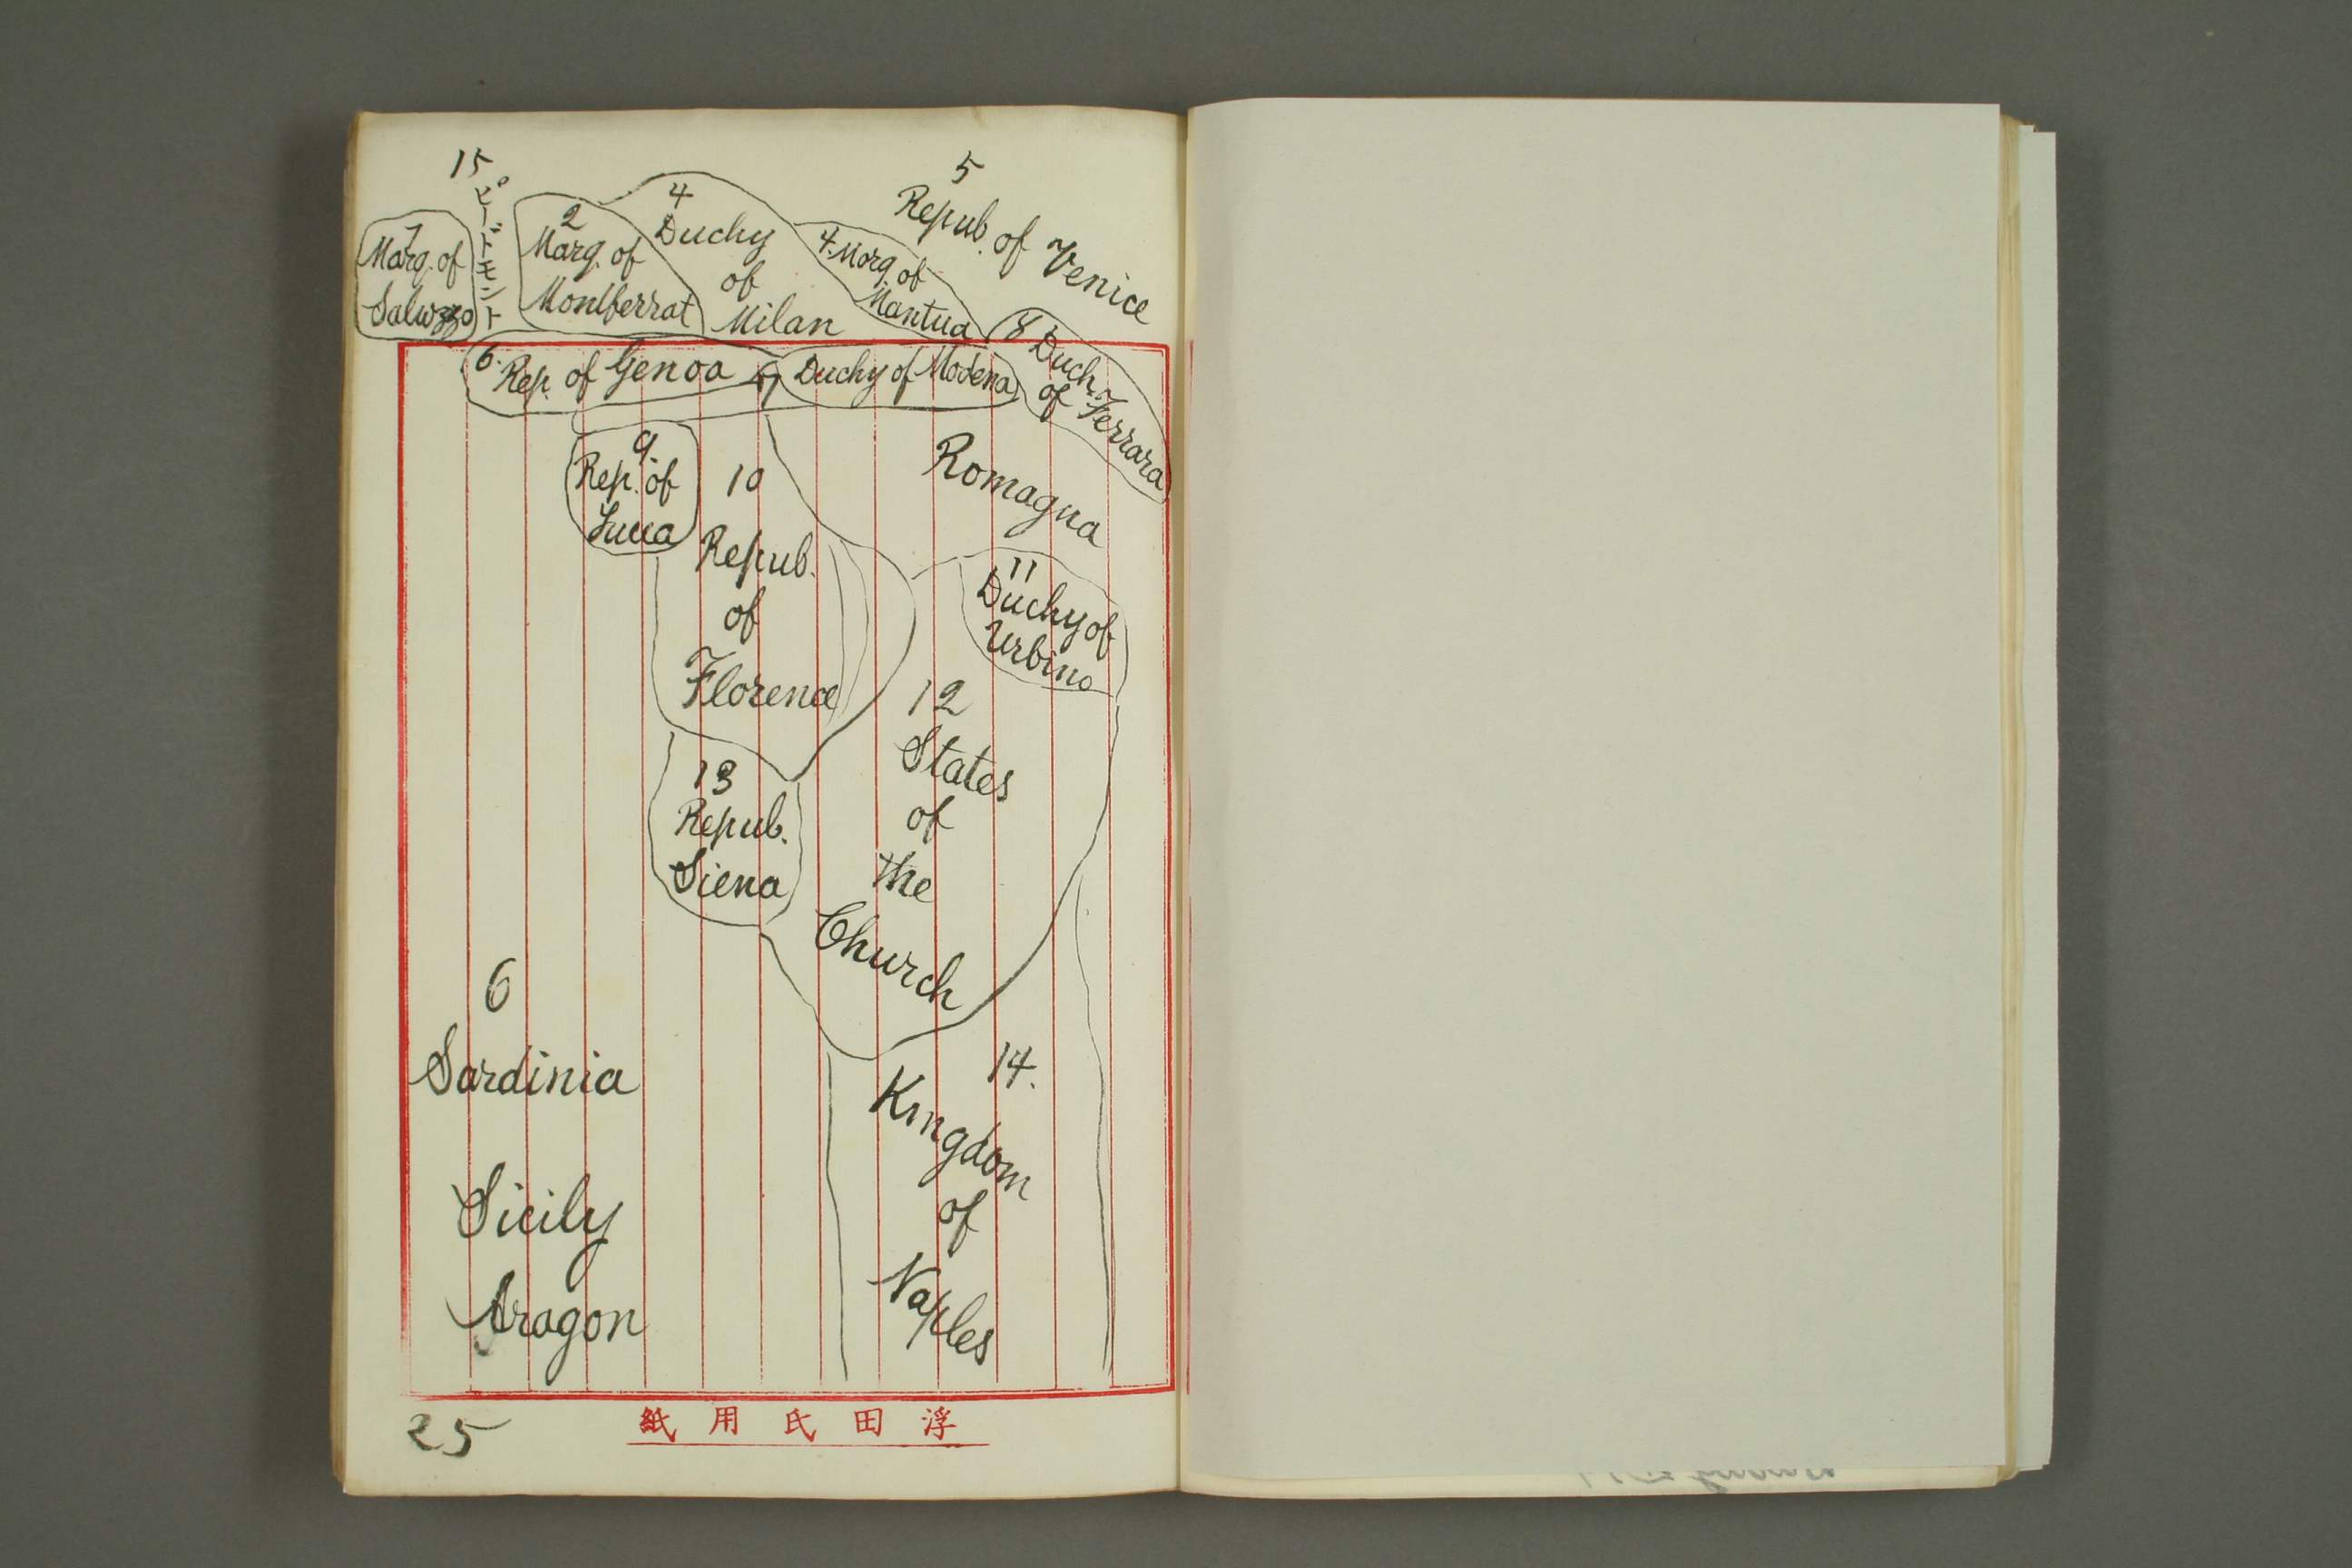 15
ピードモント
1
Marg. of
Saluzzo
2
Marg. of
Montferrat
4
Duchy
of
Milan
4. Marq. of
Mantua
5
Repub. of Venice
6. Rep. of Genoa
7 Duchy of Modena
8 Duch.
of Ferrara
9.
Rep. of
Lucca
10
Repub.
of
Florence
Romagna
11
Duchy of
Urbino
12
States
of
the
Church
13
Repub.
Siena
6
Sardinia
Sicily
Aragon
14.
Kingdom
of
Naples
25
紙用氏田浮